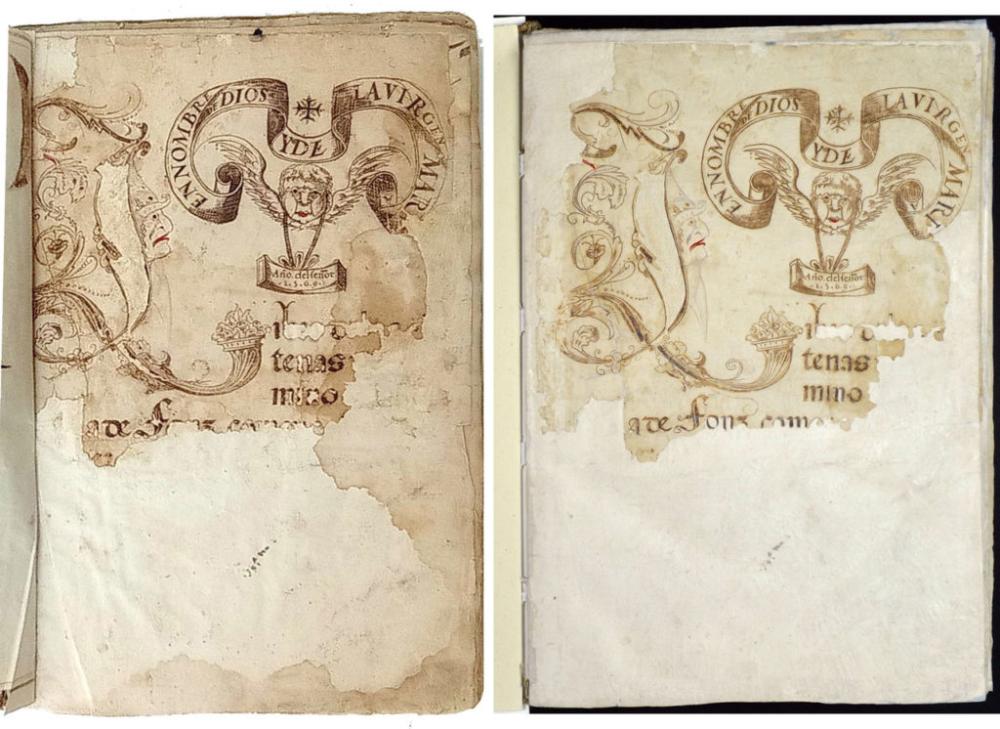 EN NOMBRE DE DIOS
YDE
LA VIRGEN MAR
Año. del señor
tenas
mino
a de Fonz
EN NOMBRE DE DIOS
YDE
LA VIRGEN MARI
Año. del señor
tenas
mino
a de Fonz